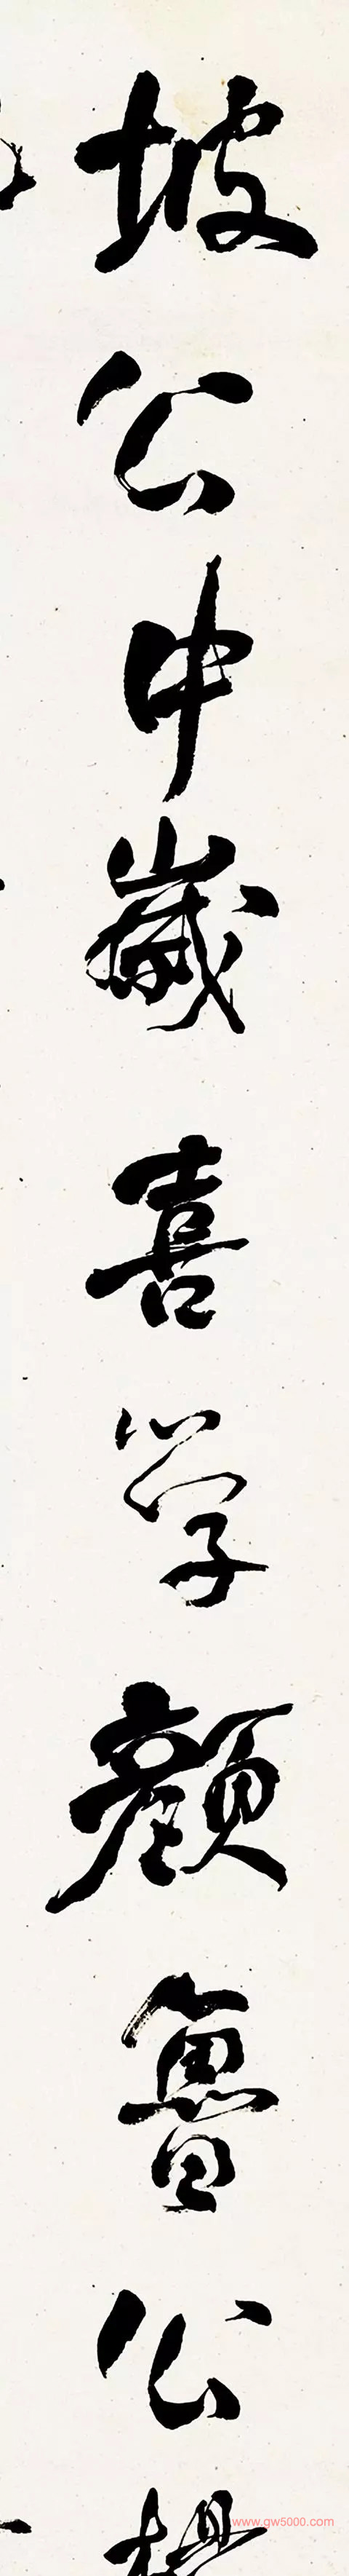 坡公中歲喜学顔魯公
www.qw5000.com